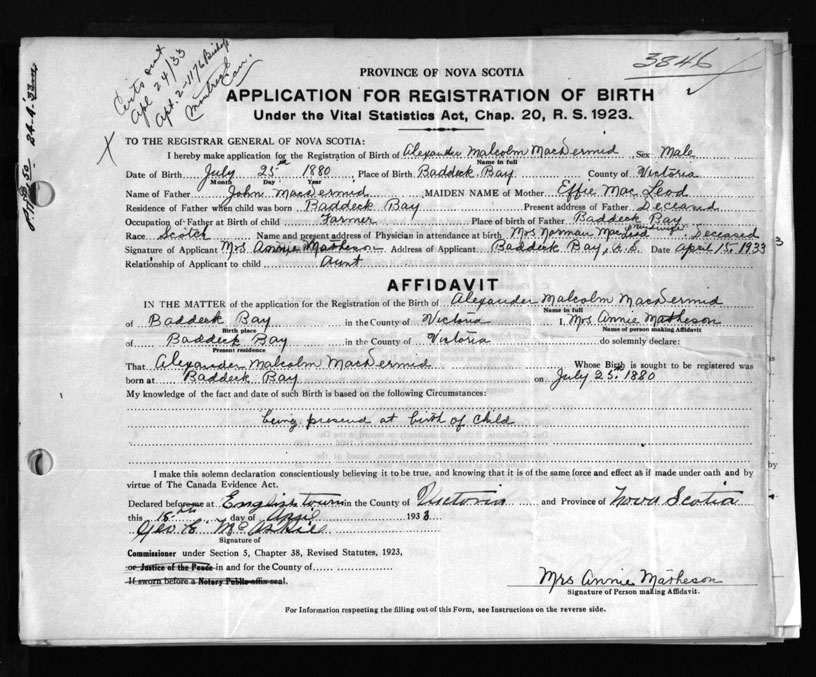 3846
Certs out
Apl 24/33
Apt. 2-1176 Bishop
Montreal
Can.
PROVINCE OF NOVA SCOTIA
APPLICATION FOR REGISTRATION OF BIRTH
Under the Vital Statistics Act, Chap. 20, R. S. 1923.
TO THE REGISTRAR GENERAL OF NOVA SCOTIA:
I hereby make application for the Registration of Birth of Alexander Malcolm MacDermid Sex Male
Name in full
Date of Birth July 25th 1880 Place of Birth Baddeck Bay County of Victoria
Month Day Year
Name of Father John MacDermid MAIDEN NAME of Mother Effie Mac Leod
Residence of Father when child was born Baddeck Bay Present address of Father Deceased
Occupation of Father at Birth of child Farmer Place of birth of Father Baddeck Bay
Race Scotch Name and present address of Physician in attendance at birth Mrs Norman MacLeod Midwife Deceased
Signature of Applicant Mrs Annie Matheson Address of Applicant Baddeck Bay, N.S. Date April 15, 1933
Relationship of Applicant to child Aunt
AFFIDAVIT
IN THE MATTER of the application for the Registration of the Birth of Alexander Malcolm MacDermid
Name in full
of Baddeck Bay in the County of Victoria I, Mrs Annie Matheson
Birth place Name of person making Affidavit
of Baddeck Bay in the County of Victoria do solemnly declare:
Present residence
That Alexander Malcolm MacDermid Whose Birth is sought to be registered was
born at Baddeck Bay on July 25th 1880
My knowledge of the fact and date of such Birth is based on the following Circumstances:
being presend at birth of child
I make this solemn declaration conscientiously believing it to be true, and knowing that it is of the same force and effect as if made under oath and by
virtue of The Canada Evidence Act.
Declared before me at Englishtown in the County of Victoria and Province of Nova Scotia
this 15th day of April 1933
Geo. E. McAskill
Signature of
Commissioner under Section 5, Chapter 38, Revised Statutes, 1923,
or Justice of the Peace in and for the County of
If sworn before a Notary Public affix seal.
Mrs Annie Matheson
Signature of Person making Affidavit.
For Information respecting the filling out of this Form, see Instructions on the reverse side.